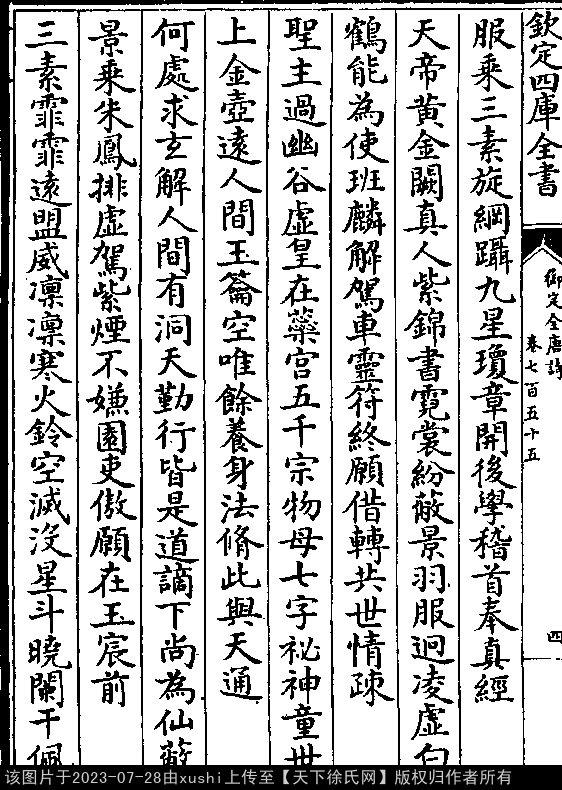 欽定四庫全書
御定全唐詩
卷七百五十五
四
服乘三素旋綱躡九星瓊章開後學稽首奉真經
天帝黃金闕真人紫錦書霓裳紛蔽景羽服迥凌虛白
鶴能為使班麟解駕車靈符終願借轉共世情疎
聖主過幽谷虛皇在蘂宮五千宗物母七字祕神童世
上金壺遠人間玉籥空唯餘養身法脩此與天通
何處求玄解人間有洞天勤行皆是道謫下尚為仙蔽
景乘朱鳳排虛駕紫煙不嫌園吏傲願在玉宸前
三素霏霏遠盟威凜凜寒火鈴空滅沒星斗曉闌干佩
该图片于2023-07-28由xushi上传至【天下徐氏网】版权归作者所有